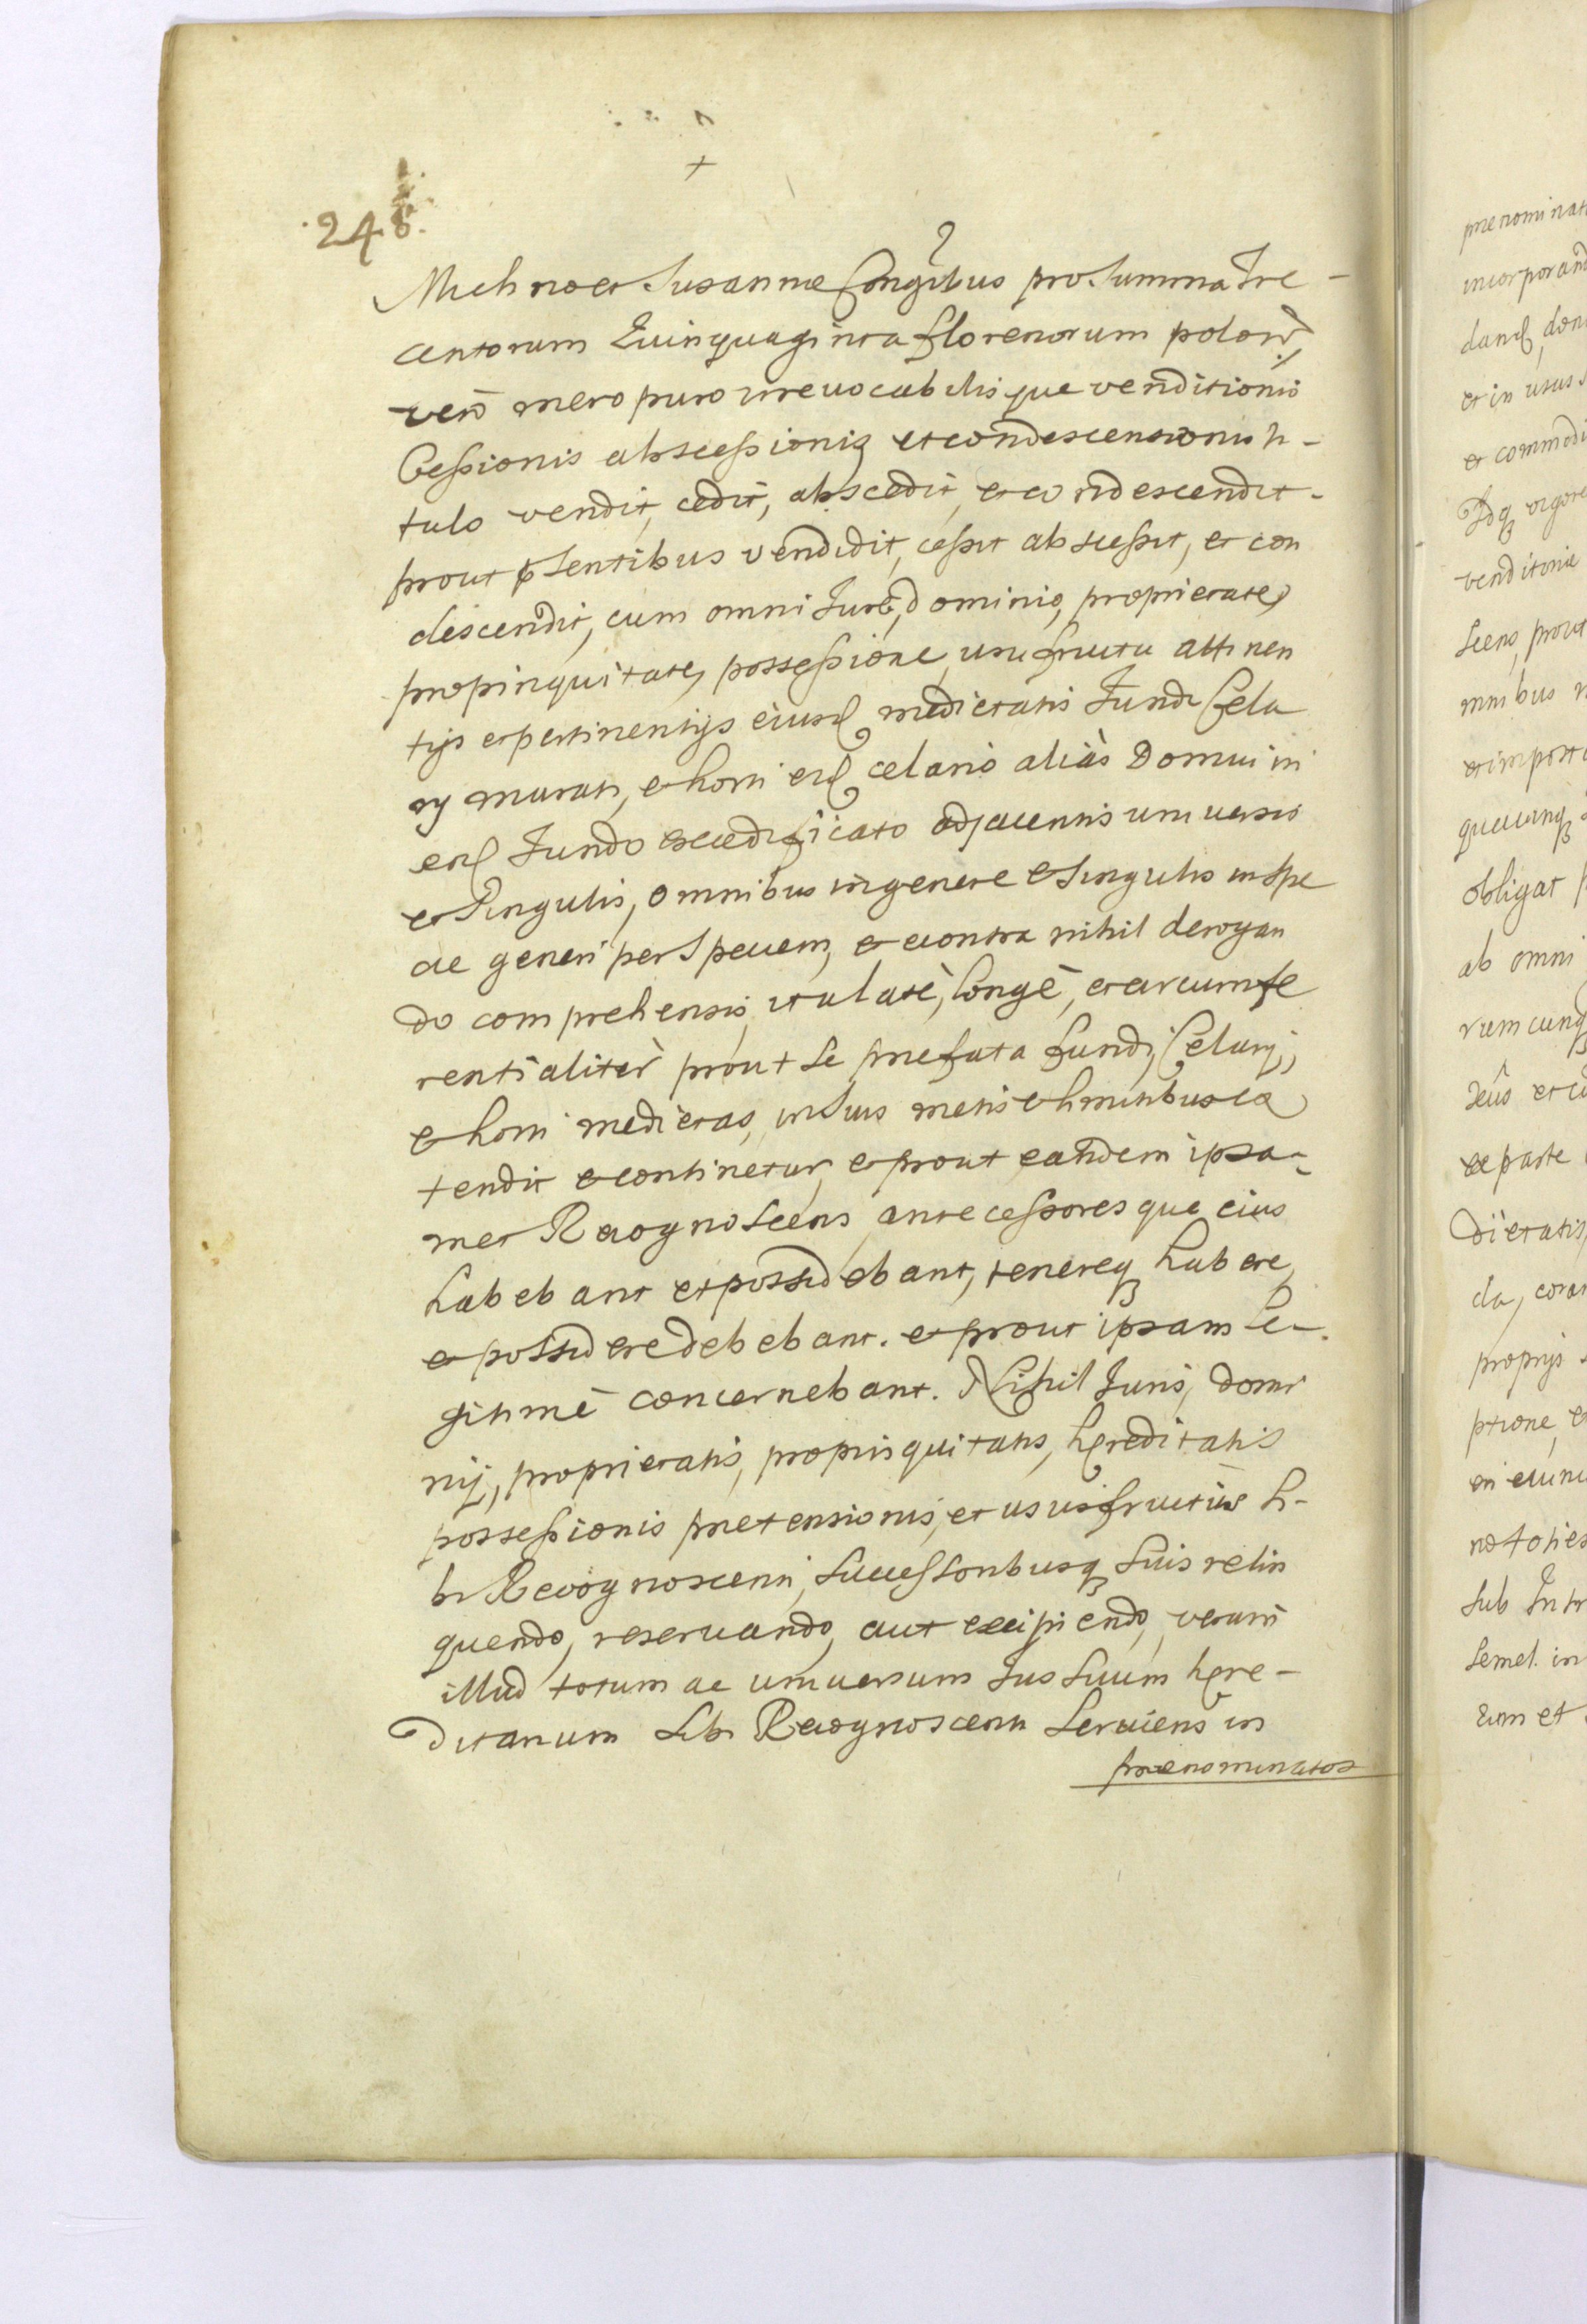 248.
Michno et Susannæ Congibus pro Summa Tre-
centorum Quinquaginta florenorum polon,
vero mero puro irreuocabilisque venditionis
Cessionis abscessionis et condescensionis ti-
tulo vendit, cedit, abscedit, et condescendit
prout pñsentibus vendidit, cessit abscessit, et con
descendit, cum omni Jure, dominio, proprietate,
propinquitate, possessione, usufructu attinen
tijs et pertinentijs eiusd medietatis Fundi Cela
rij murati, et horti erd celario aliàs Domui in
eod Fundo exædificato adjacentis universis
et Singulis, omnibus in genere et Singulis in Spe
cie generi per Speciem, et econtra nihil derogan
do comprehensis, ita latè, longè, et circumfe
rentialitèr prout se præfata fundi, Celarij,
et horti medietas, in suis metis et limitibus ex
tendit et continetur, et prout eandem ipsa-
met Recognoscens, antecessoresque eius
habebant et possidebant, tenereq habere,
et possidere debebant. et prout ipsam le-
gitimè concernebant. Nihil Juris, domi
nij, proprietatis, propinquitatis, hæreditatis
possessionis prætensionis, et ususfructus si-
bi Recognoscenti, Successoribusq suis relin
quendo, reservando, aut excipiendo, verum
illud totum ac universum Jus suum hære-
ditarium sibi Recognoscenti serviens in
prænominatos
prenominat
incorporand
et in usus
et commodi
Idq vigore
venditoriæ
scens, prout
mnibus
et imposit
quecunq
obligat
ab omni
rumcunq
ex parte
dietatis,
da, cora
proprijs
ptione, e
no toties
sub
semel in